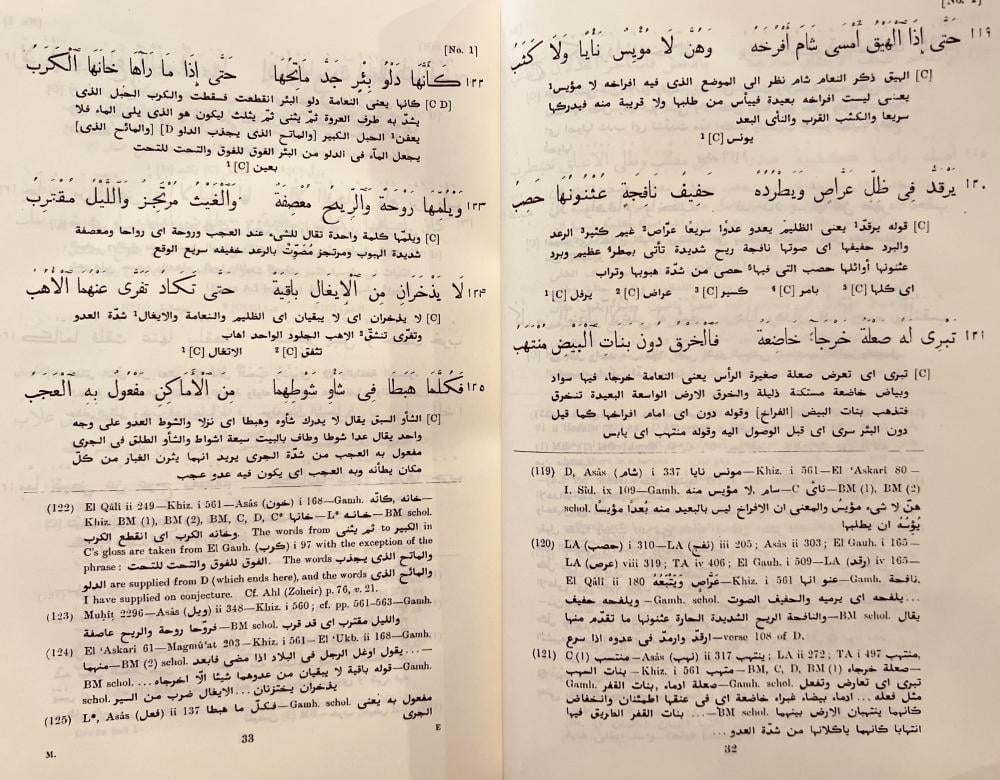 [No. 1]
١١٩ حَتَّى إِذَا ٱلْهَيْقُ أَمْسَى شَامَ أَفْرُخَهُ وَهُنَّ لَا مُؤْيِسٌ نَأْيًا وَلَا كَثَبُ
[C] الهيق ذكر النعام شام نظر الى الموضع الذى فيه افراخه لا مؤيس¹
يعنى ليست افراخه بعيدة فييأس من طلبها ولا قريبة منه فيدركها
سريعا والكثب القرب والنأى البعد
يونس [C] ¹
١٢٠ يَرْقَدُّ فِى ظِلِّ عَرَّاصٍ وَيَطْرُدُهُ حَفِيفُ نَافِجَةٍ عُثْنُونُهَا حَصِبُ
[C] قوله يرقدّ¹ يعنى الظليم يعدو عدوًا سريعًا عرّاص² غيم كثير³ الرعد
والبرد حفيفها اى صوتها نافجة ريح شديدة تأتى بمطر⁴ عظيم وبرد
عثنونها أوائلها حصب التى فيها⁵ حصى من شدّة هبوبها وتراب
اى كلها [C] ⁵ بامر [C] ⁴ كسير [C] ³ عراض [C] ² يرفل [C] ¹
١٢١ تَبْرِى لَهُ صَعْلَةٌ خَرْجَآءُ خَاضِعَةٌ فَٱلْخَرْقُ دُونَ بَنَاتِ ٱلْبَيْضِ مُنْتَهَبُ
[C] تبرى اى تعرض صعلة صغيرة الرأس يعنى النعامة خرجاء فيها سواد
وبياض خاضعة مستكنة ذليلة والخرق الارض الواسعة البعيدة تنخرق
فتذهب بنات البيض [الفراخ] وقوله دون اى امام افراخها كما قيل
دون البئر سرى اى قبل الوصول اليه وقوله منتهب اى يابس
(119) D, Asâs (شام) i 337 مونس نايا—Khiz. i 561—El ‘Askari 80—
I. Sîd. ix 109—Gamh. سام, لا مؤيس منه—C نائى—BM (1), BM (2)
schol. هنّ لا شىء مؤيس والمعنى ان الافراخ ليس بالبعيد منه بُعدًا مؤيسًا
يُؤْسُهُ ان يطلبها
(120) LA (حصب) i 310—LA (نفج) iii 205; Asâs ii 303; El Gauh. i 165—
LA (عرص) viii 319; TA iv 406; El Gauh. i 509—LA (رقد) iv 165—
El Qâli ii 180 عَرَّاصٍ وَيَتْبَعُهُ—Khiz. i 561 عنو انها—Gamh. نافحة.
—Gamh. schol. ويلفحه حفيف ... يلفحه اى يرميه والحفيف الصوت
يقال BM schol.—والنافحة الريح الشديدة الحارة عثنونها ما تقدّم منها
ارقدّ وارمدّ فى عدوه اذا سرع—verse 108 of D.
(121) C (1) منتسب—Asâs (نهب) ii 317 ينتهب; LA ii 272; TA i 497 منتهب,
بنات الهيب—Khiz. i 561 منهب—BM, C, D, BM (1) صعلة خرجاء—
Gamh. صعلة ادماء, بنات القفر—Gamh. schol. تبرى اى تعارض وتفعل
مثل فعله ... ادماء بيضاء غبراء خاضعة اى فى عنقها اطمئنان وانخفاض
... بنات القفر الطريق فيها—BM schol. كانهما ينتهبان الارض بينهما
انتهابا كانهما ياكلانها من شدّة العدو ...
32
[No. 1]
١٢٢ كَأَنَّهَا دَلْوُ بِئْرٍ جَدَّ مَاتِحُهَا حَتَّى إِذَا مَا رَآهَا خَانَهَا ٱلْكَرَبُ
[C D] كانها يعنى النعامة دلو البئر انقطعت فسقطت والكرب الحبل الذى
يشدّ به طرف العروة ثمّ يثنى ثمّ يثلث ليكون هو الذى يلى الماء فلا
يعفن¹ الحبل الكبير [والماتح الذى يجذب الدلو D] [والمائح الذى]
يجعل المآء فى الدلو من البئر الفوق للفوق والتحت للتحت
بعين [C] ¹
١٢٣ وَيْلُمِّهَا رَوْحَةً وَٱلرِّيحُ مُعْصِفَةٌ وَٱلْغَيْثُ مُرْتَجِزٌ وَٱللَّيْلُ مُقْتَرِبُ
[C] ويلمّها كلمة واحدة تقال للشىء عند العجب وروحة اى رواحا ومعصفة
شديدة الهبوب ومرتجز مُصَوِّتٌ بالرعد خفيفه سريع الوقع
١٢٤ لَا يَذْخَرَانِ مِنَ ٱلْإِيغَالِ بَاقِيَةً حَتَّى تَكَادَ تَفَرَّى عَنْهُمَا ٱلْأُهُبُ
[C] لا يذخران اى لا يبقيان اى الظليم والنعامة والايغال¹ شدّة العدو
وتفرّى تنشقّ² الاهب الجلود الواحد اهاب
تثفق [C] ² الاتغال [C] ¹
١٢٥ فَكُلَّمَا هَبَطَا فِى شَأْوِ شَوْطِهِمَا مِنَ ٱلْأَمَاكِنِ مَفْعُولٌ بِهِ ٱلْعَجَبُ
[C] الشأو السبق يقال لا يدرك شأوه وهبطا اى نزلا والشوط العدو على وجه
واحد يقال عدا شوطا وطاف بالبيت سبعة اشواط والشأو الطلق فى الجرى
مفعول به العجب من شدّة الجرى يريد انهما يثورن الغبار من كلّ
مكان يطآنه وبه العجب اى يكون فيه عدو عجب
(122) El Qâli ii 249—Khiz. i 561—Asâs (خون) i 168—Gamh. خانه, كانّه—
Khiz. BM (1), BM (2), BM, C, D, C* خانها—L* خانه—BM schol.
وخانه الكرب اى انقطع الكرب. The words from ثم يثنى to الكبير in
C's gloss are taken from El Gauh. (كرب) i 97 with the exception of the
phrase: الفوق للفوق والتحت للتحت. The words والماتح الذى يجذب
الدلو are supplied from D (which ends here), and the words والمائح الذى
I have supplied on conjecture. Cf. Ahl (Zoheir) p. 76, v. 21.
(123) Muḥîṭ 2296—Asâs (ويل) ii 348—Khiz. i 560; cf. pp. 561–563—Gamh.
فروّحا روحة والريح عاصفة—BM schol. والليل مقترب اى قد قرب
(124) El ‘Askari 61—Magmû‘at 203—Khiz. i 561—El ‘Ukb. ii 168—Gamh.
منهما—BM (2) schol. يقول اوغل الرجل فى البلاد اذا مضى فابعد...—
BM schol. قوله باقية لا يبقيان من عدوهما شيئا الّا اخرجاه ...—Gamh.
schol. يذخران يختزنان...الايغال ضرب من السير
(125) L*, Asâs (فعل) ii 137 فكلّ ما هبطا—Gamh. schol. مفعول به يُعنى
الجرى
33
E
M.